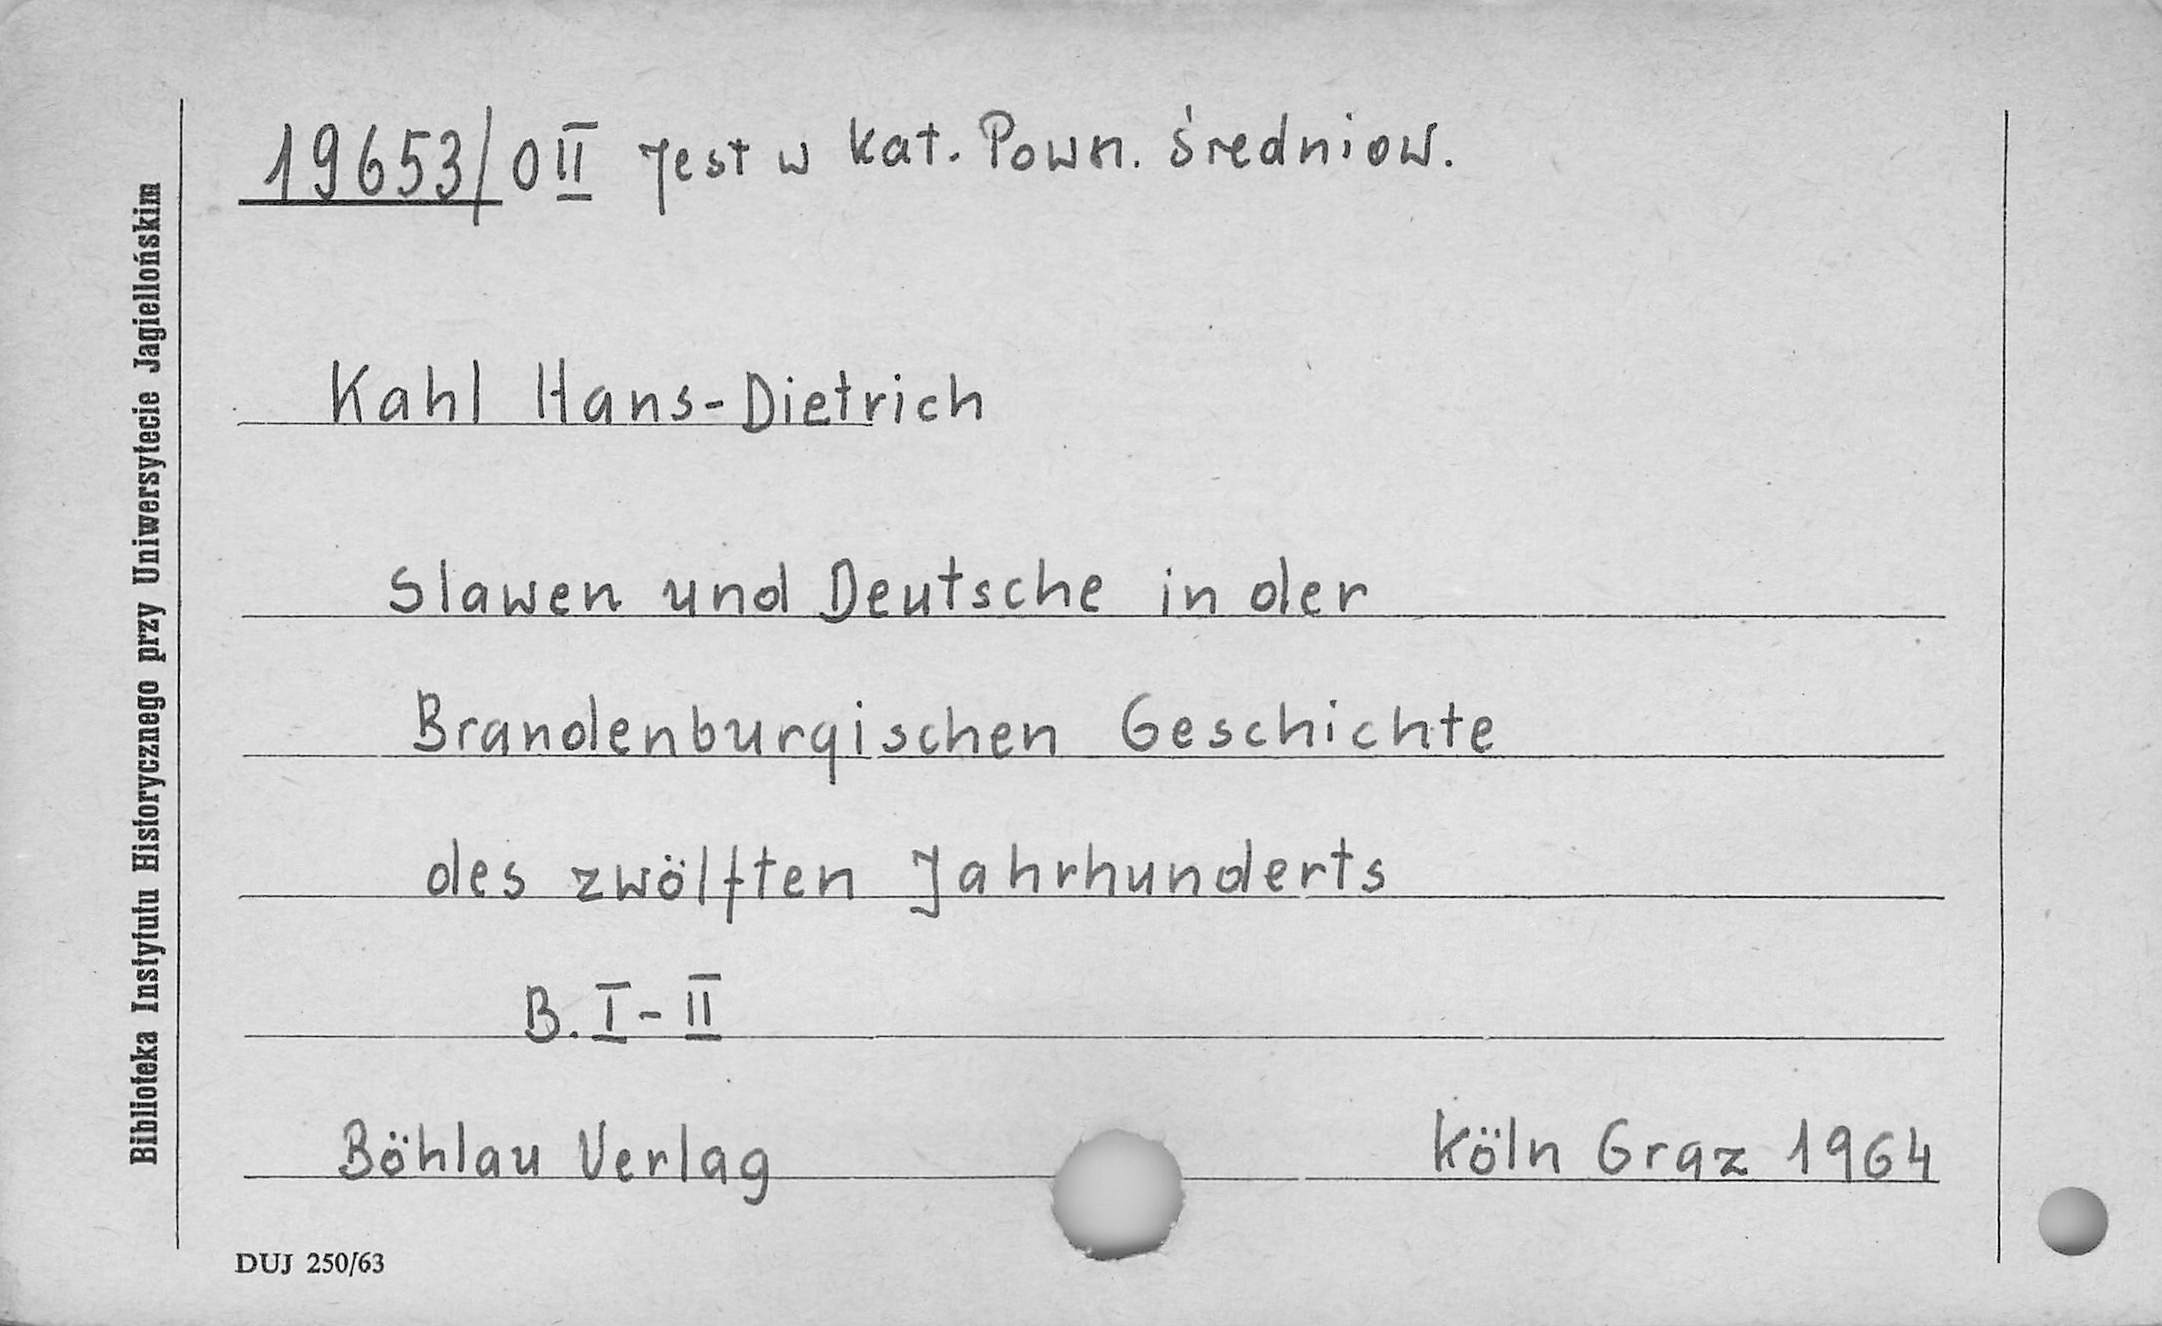 19653/0 II Jest w kat. Pown. średniow.
Kahl Hans-Dietrich
Slawen und Deutsche in der
Brandenburgischen Geschichte
des zwölften Jahrhunderts
B. I - II
Böhlau Verlag Köln Graz 1964
DUJ 250/63
Biblioteka Instytutu Historycznego przy Uniwersytecie Jagiellońskim